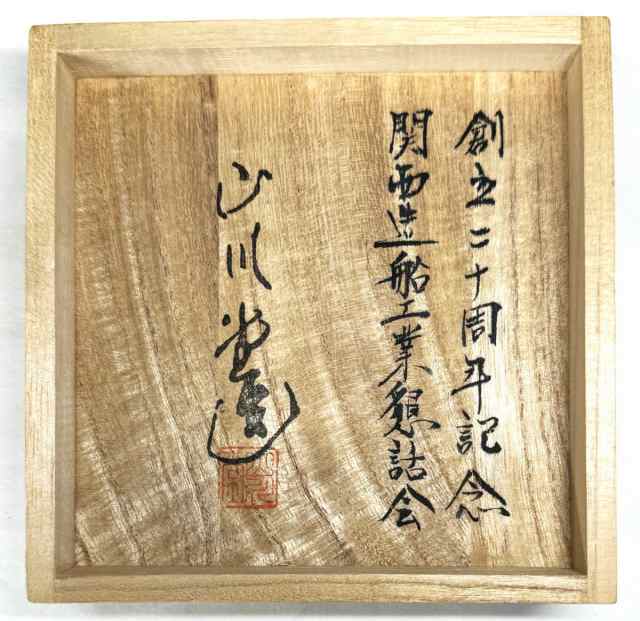 創立二十周年記念
関西造船工業懇話会
山川堂造